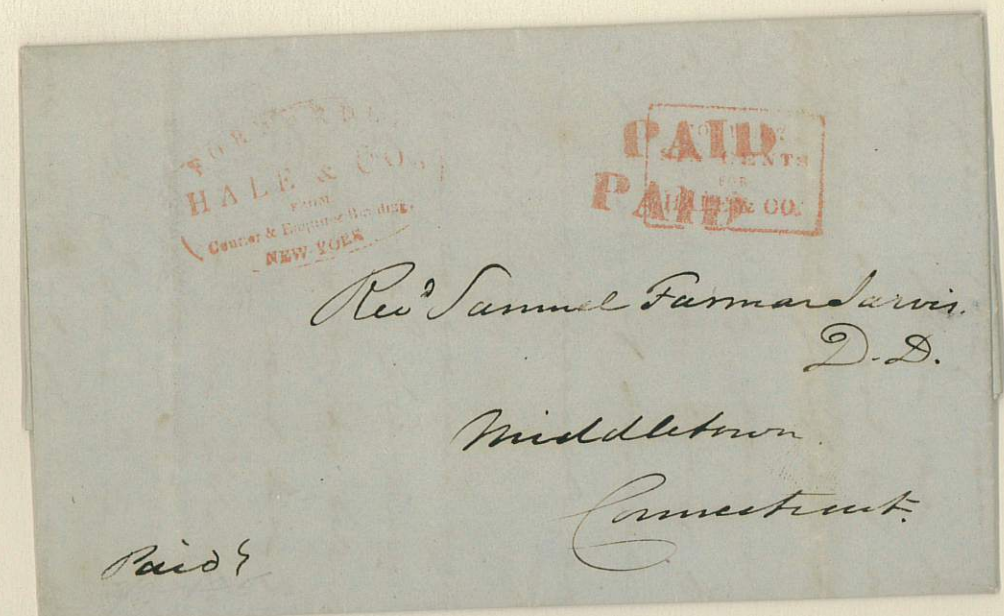 FORWARDED
HALE & CO.
FROM
Courier & Enquirer Building,
NEW-YORK
PAID
PAID
CENTS
FOR
HALE & CO.
Revd Samuel Farmar Jarvis.
D.D.
Middletown
Connecticut.
Paid